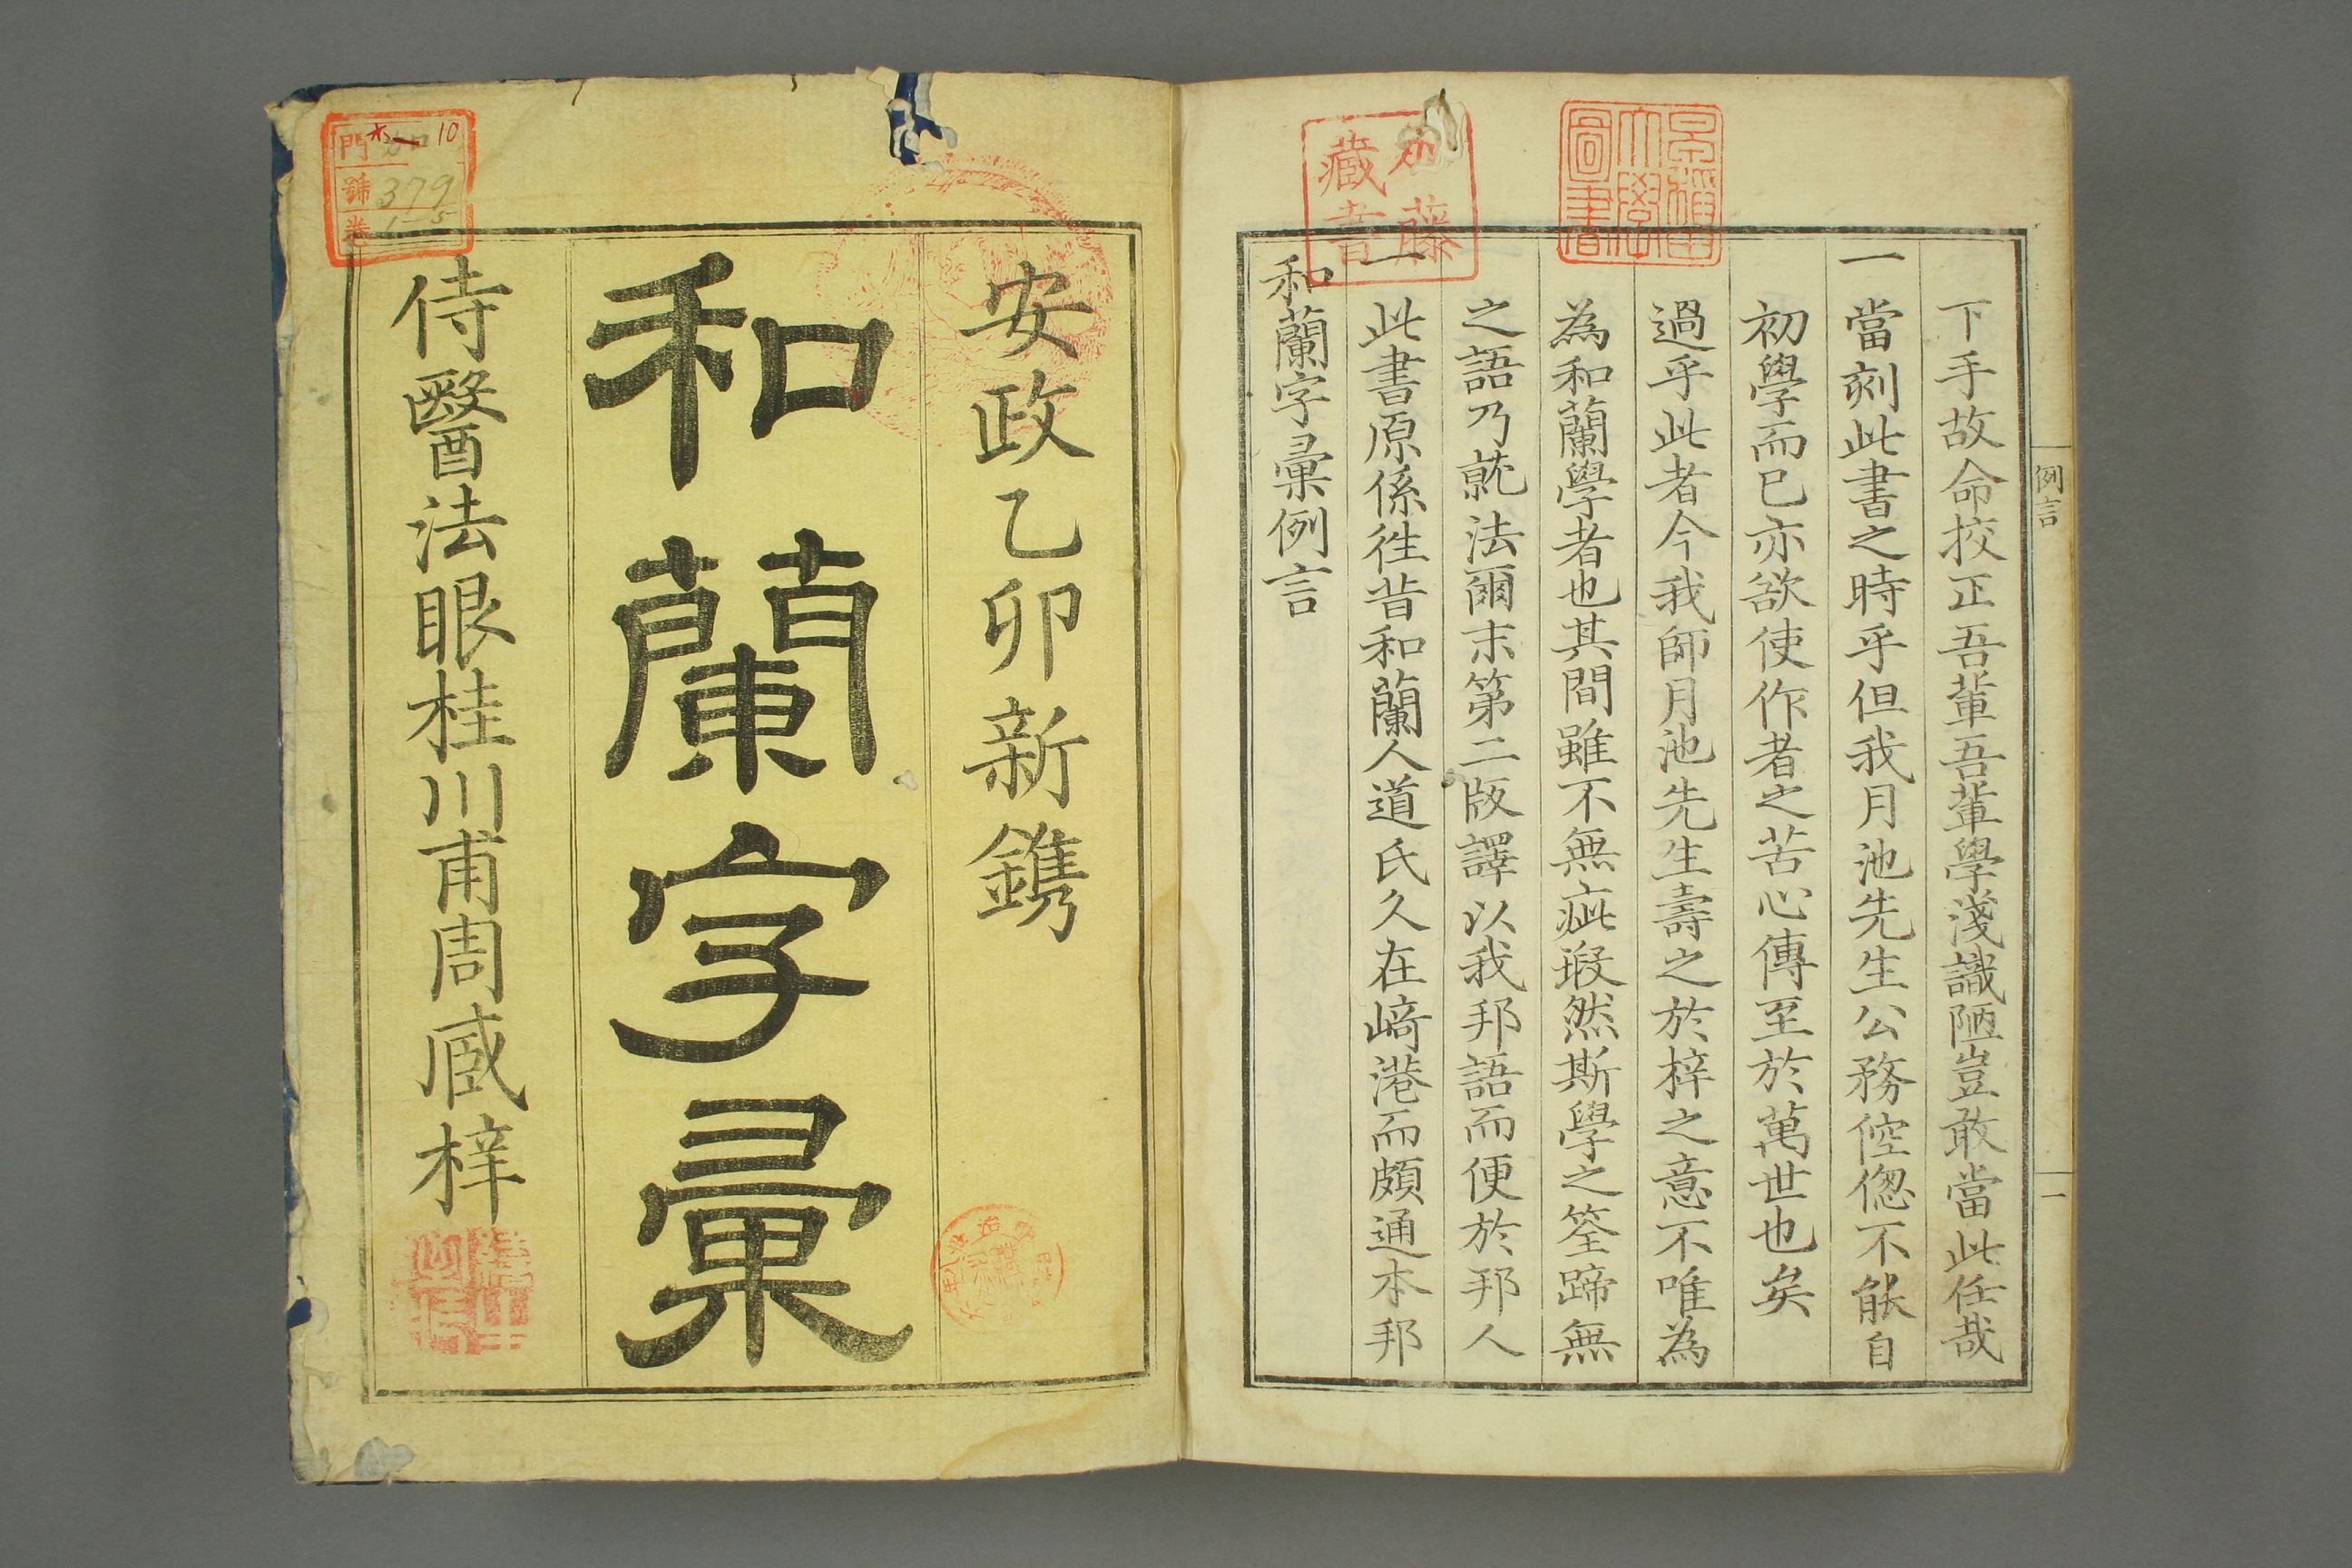 門 10
號 379
卷 1-5
侍醫法眼桂川甫周蔵梓
和蘭字彙
安政乙卯新鐫
藤
藏書
早稻田
大學
圖書
和蘭字彙例言
一此書原係徃昔和蘭人道氏久在﨑港而頗通本邦
之語乃就法爾末第二版譯以我邦語而便於邦人
為和蘭學者也其間雖不無疵瑕然斯學之筌蹄無
過乎此者今我師月池先生壽之於梓之意不唯為
初學而已亦欲使作者之苦心傳至於萬世也矣
一當刻此書之時乎但我月池先生公務倥偬不能自
下手故命挍正吾輩吾輩學淺識陋豈敢當此任哉
例言
一